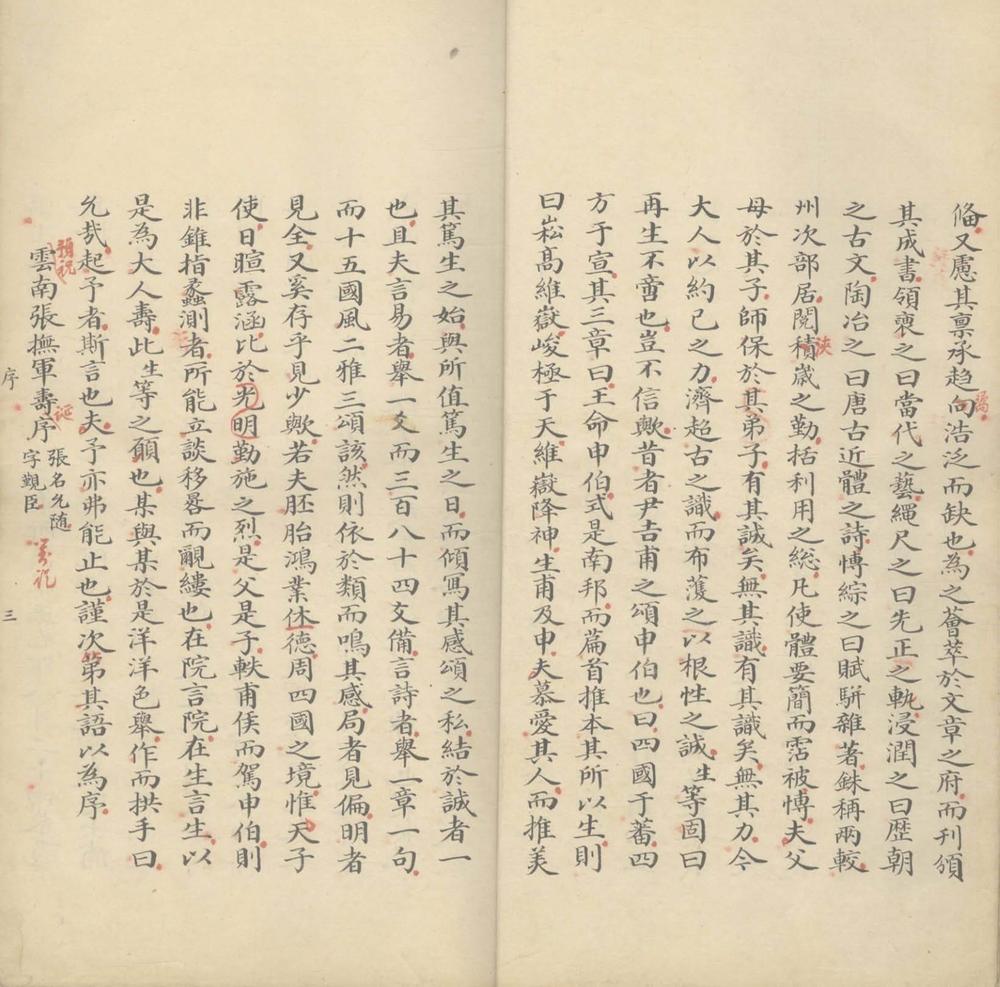 偹又慮其稟承趋向浩泛而缺也為之薈萃於文章之府而刊頒
其成書領褏之曰當代之藝繩尺之曰先正之軌浸潤之曰歷朝
之古文陶冶之曰唐古近體之詩博綜之曰賦駢雜著銖稱兩較
州次部居閱積歲之勤括利用之總凡使體要簡而霑被博夫父
浹
母於其子師保於其弟子有其誠矣無其識有其識矣無其力今
大人以約己之力濟超古之識而布濩之以根性之誠生等固曰
再生不啻也豈不信歟昔者尹吉甫之頌申伯也曰四國于蕃四
方于宣其三章曰王命申伯式是南邦而篇首推本其所以生則
曰崧高維嶽峻極于天維嶽降神生甫及申夫慕愛其人而推美
其篤生之始與所值篤生之日而傾寫其感頌之私結於誠者一
也且夫言易者舉一爻而三百八十四爻備言詩者舉一章一句
而十五國風二雅三頌該然則依於類而鳴其感局者見偏明者
見全又奚存乎見少歟若夫胚胎鴻業休德周四國之境惟天子
使日暄露涵比於光明勤施之烈是父是子軼甫侯而駕申伯則
非錐指蠡測者所能立談移晷而覼縷也在院言院在生言生以
是為大人壽此生等之願也某與某於是洋洋色舉作而拱手曰
允哉起予者斯言也夫予亦弗能止也謹次第其語以為序
預祝
雲南張撫軍壽序
誕
張名允随
字觀臣
序
三